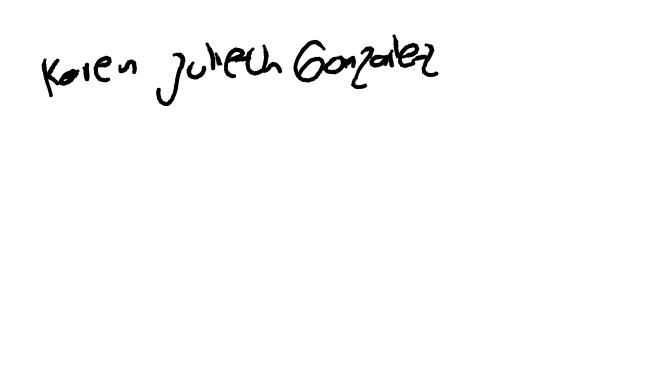 Karen Julieth Gonzalez